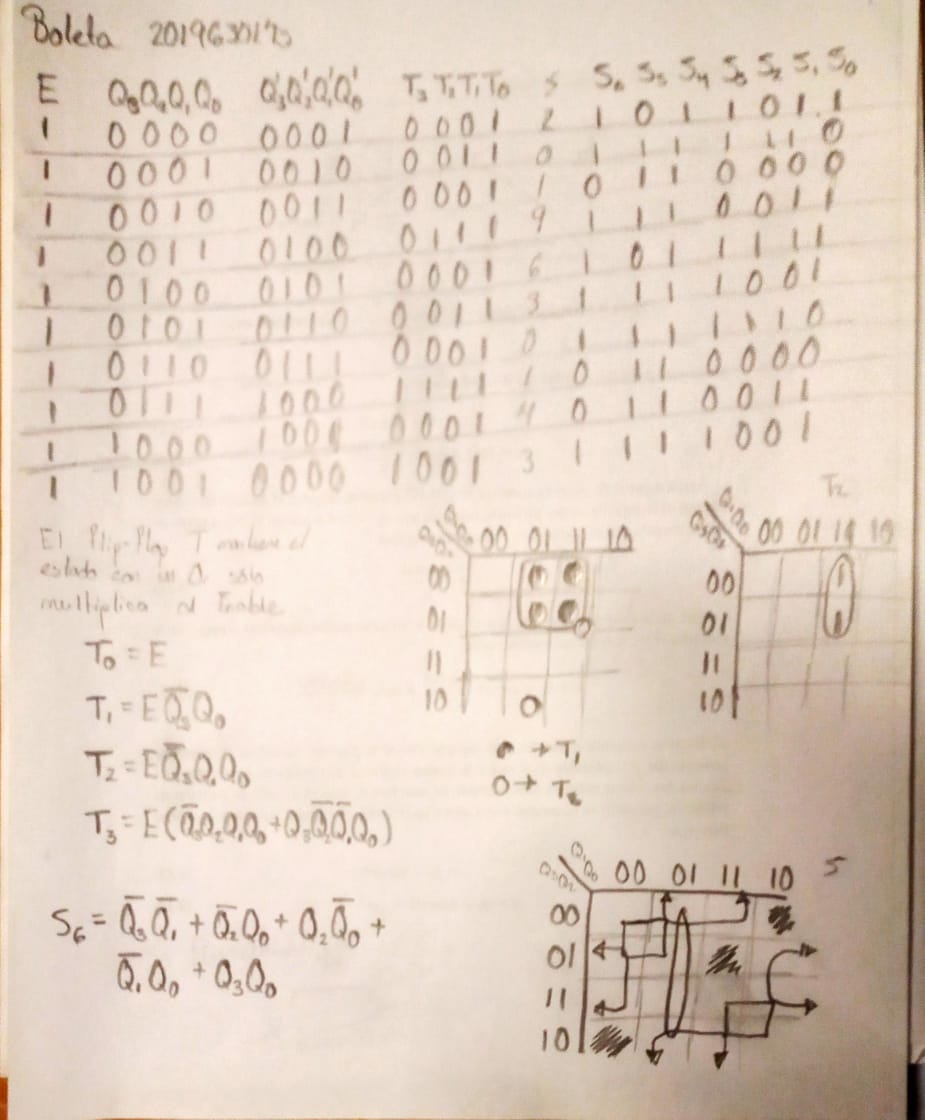 Boleta 201963017
E Q₃Q₂Q₁Q₀ Q₃'Q₂'Q₁'Q₀' T₃ T₂ T₁ T₀ S S₆ S₅ S₄ S₃ S₂ S₁ S₀
1 0000 0001 0001 2 1 0 1 1 0 1 1
1 0001 0010 0011 0 1 1 1 1 1 1 0
1 0010 0011 0001 1 0 1 1 0 0 0 0
1 0011 0100 0111 9 1 1 1 0 0 1 1
1 0100 0101 0001 6 1 0 1 1 1 1 1
1 0101 0110 0011 3 1 1 1 1 0 0 1
1 0110 0111 0001 0 1 1 1 1 1 1 0
1 0111 1000 1111 1 0 1 1 0 0 0 0
1 1000 1001 0001 4 0 1 1 0 0 1 1
1 1001 0000 1001 3 1 1 1 1 0 0 1
El Flip-Flop T mantiene el
estado con un 0, sólo
multiplica el Enable
T₀ = E
T₁ = E Q̅₃Q₀
T₂ = E Q̅₃Q₁Q₀
T₃ = E(Q̅₃Q₂Q₁Q₀ + Q₃Q̅₂Q̅₁Q₀)
Q₁Q₀
Q₃Q₂ 00 01 11 10
00
01
11
10
→ T₁
O→
T₂
Q₁Q₀
Q₃Q₂ 00 01 11 10
00 1
01 1
11
10
S₆ = Q̅₃Q̅₁ + Q̅₂Q₀ + Q₂Q̅₀ +
Q̅₁Q₀ + Q₃Q₀
Q₁Q₀
Q₃Q₂ 00 01 11 10 S
00
01
11
10